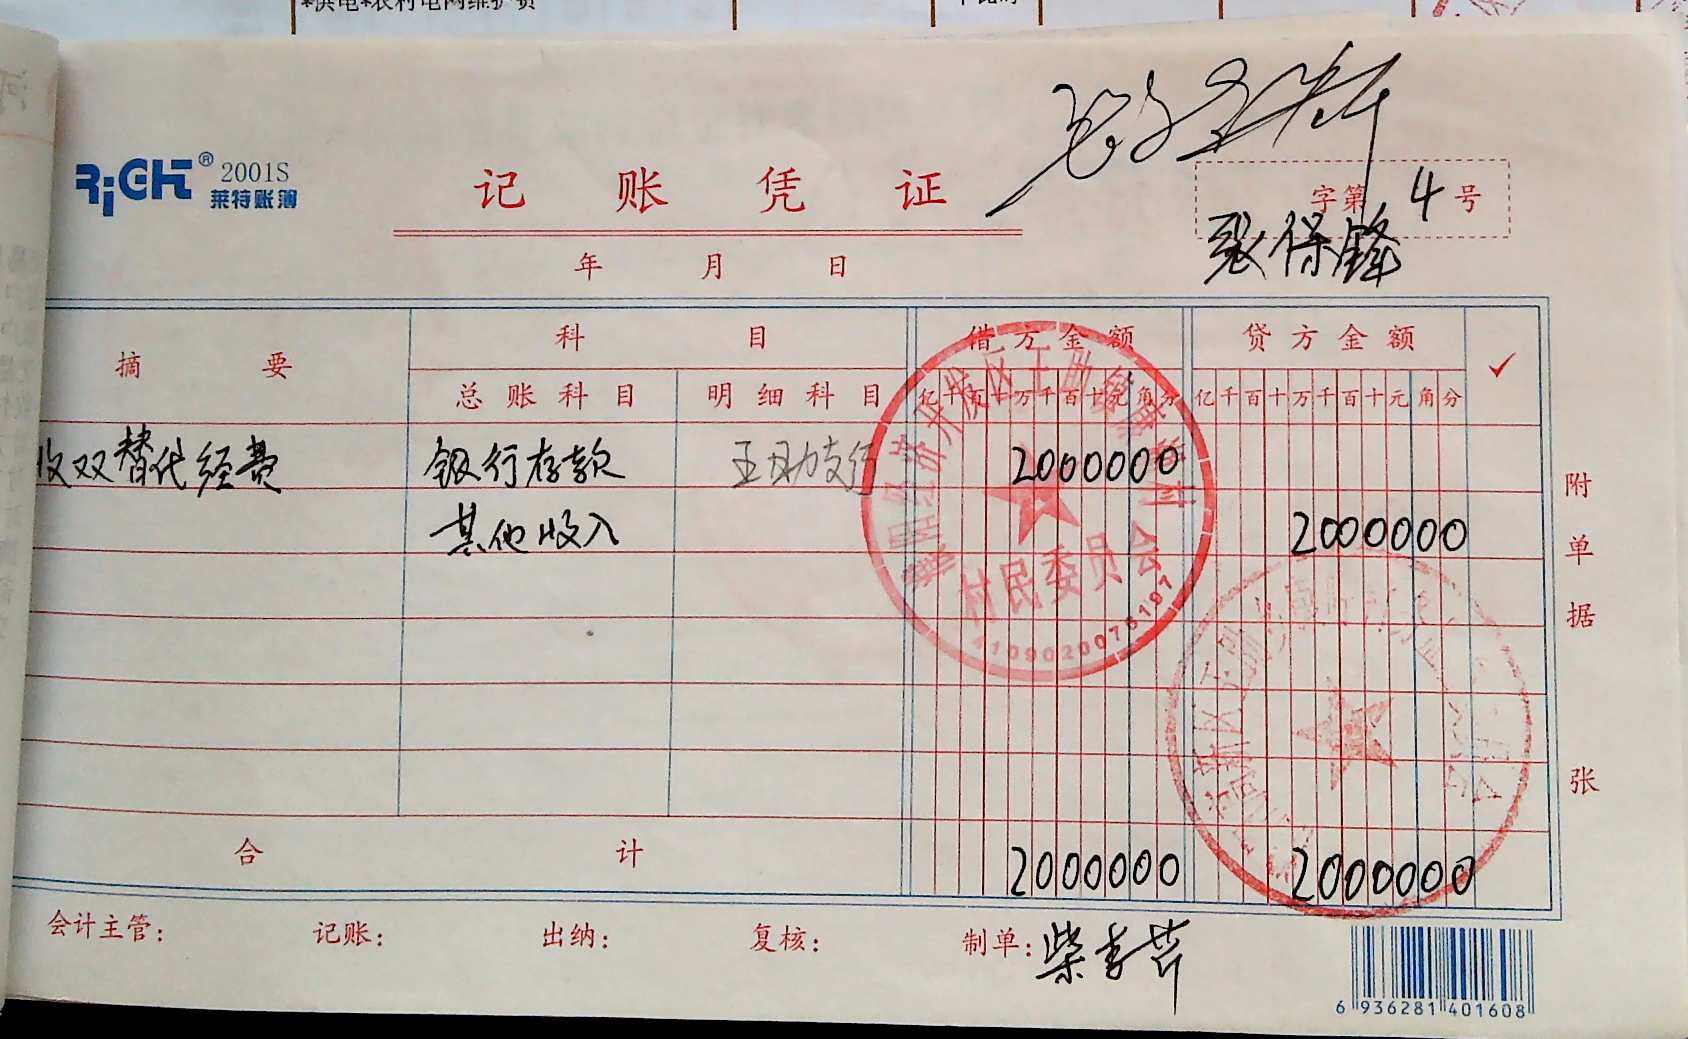 *供电*农村电网维护费
RiGHT® 2001S
莱特账簿
记账凭证
字第 4 号
张保锋
年 月 日
摘要 科目 借方金额 贷方金额 ✓
总账科目 明细科目 亿千百十万千百十元角分 亿千百十万千百十元角分
收双替代经费 银行存款 王助支行 2000000
其他收入 2000000
合计 2000000 2000000
附单据 张
村民委员会
4109020076197
会计主管: 记账: 出纳: 复核: 制单: 柴李芹
6 936281 401608